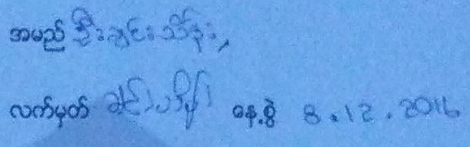 အမည် ဦးချင်းသိန်း
လက်မှတ် နေ့စွဲ 8.12.2016